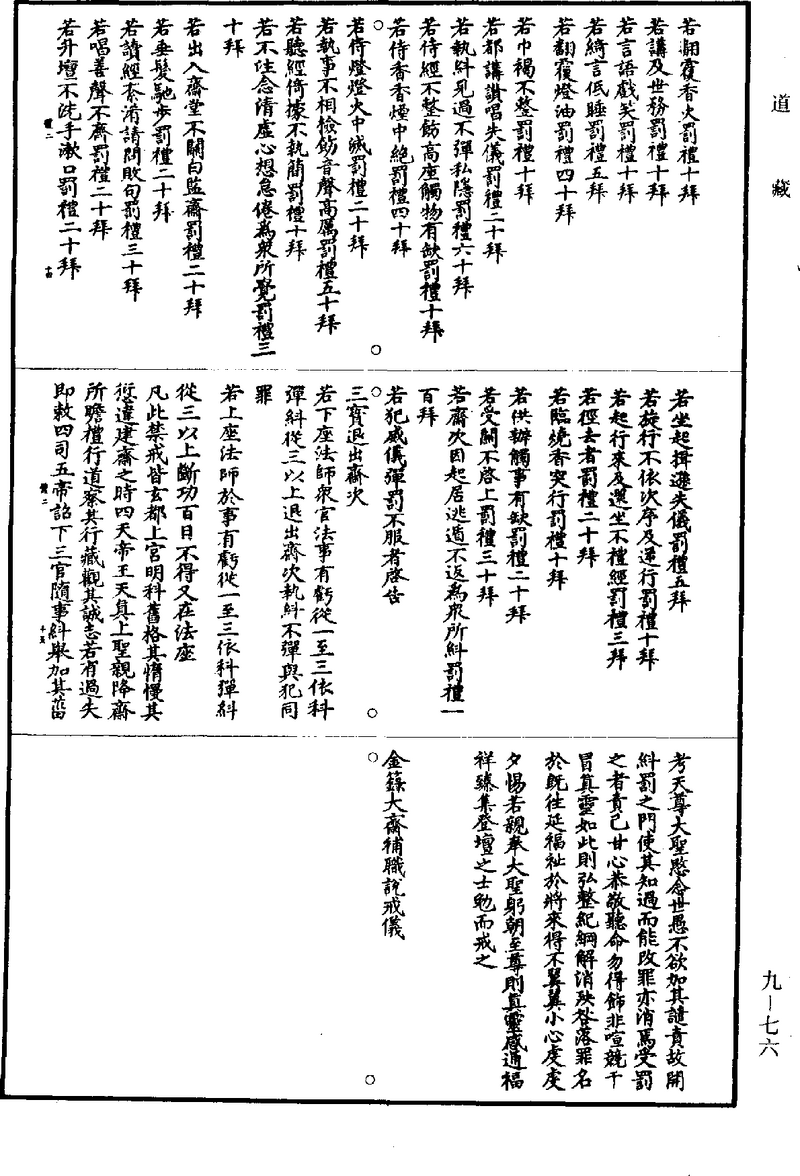 道藏
若翻覆香火罰禮十拜
若講及世務罰禮十拜
若言語戲笑罰禮十拜
若綺言低睡罰禮五拜
若翻覆燈油罰禮四十拜
若巾褐不整罰禮十拜
若都講讚唱失儀罰禮二十拜
若執糾見過不彈私隱罰禮六十拜
若侍經不整飭高座觸物有缺罰禮十拜
若侍香香煙中絕罰禮四十拜
若侍燈燈火中滅罰禮二十拜
若執事不相檢飭音聲高厲罰禮五十拜
若聽經倚據不執簡罰禮十拜
若不注念清虛心想怠倦為衆所覺罰禮三
十拜
若出入齋堂不關白監齋罰禮二十拜
若垂髮馳步罰禮二十拜
若讀經紊淆請問敗句罰禮三十拜
若唱善聲不齊罰禮二十拜
若升壇不洗手漱口罰禮二十拜
若坐起揖遜失儀罰禮五拜
若旋行不依次序及逆行罰禮十拜
若起行來及還坐不禮經罰禮三拜
若徑去者罰禮二十拜
若臨繞香突行罰禮十拜
若供辦觸事有缺罰禮二十拜
若受關不啓上罰禮三十拜
若齋次因起居逃遁不返為衆所糾罰禮一
百拜
若犯威儀彈罰不服者啓告
三寶退出齋次
若下座法師衆官法事有虧從一至三依科
彈糾從三以上退出齋次執糾不彈與犯同
罪
若上座法師於事有虧從一至三依科彈糾
從三以上斷功百日不得又在法座
凡此禁戒皆玄都上宮明科舊格其惰慢其
愆違建齋之時四天帝王天真上聖親降齋
所瞻禮行道察其行藏觀其誠志若有過失
即敕四司五帝詔下三官隨事糾舉加其菑
考天尊大聖愍念世愚不欲加其譴責故開
糾罰之門使其知過而能改罪亦消焉受罰
之者責己甘心恭敬聽命勿得飾非喧競干
冒真靈如此則弘整紀綱解消殃咎落罪名
於既往延福祉於將來得不翼翼小心虔虔
夕惕若親奉大聖躬朝至尊則真靈感通福
祥臻集登壇之士勉而戒之
金籙大齋補職說戒儀
九—七六